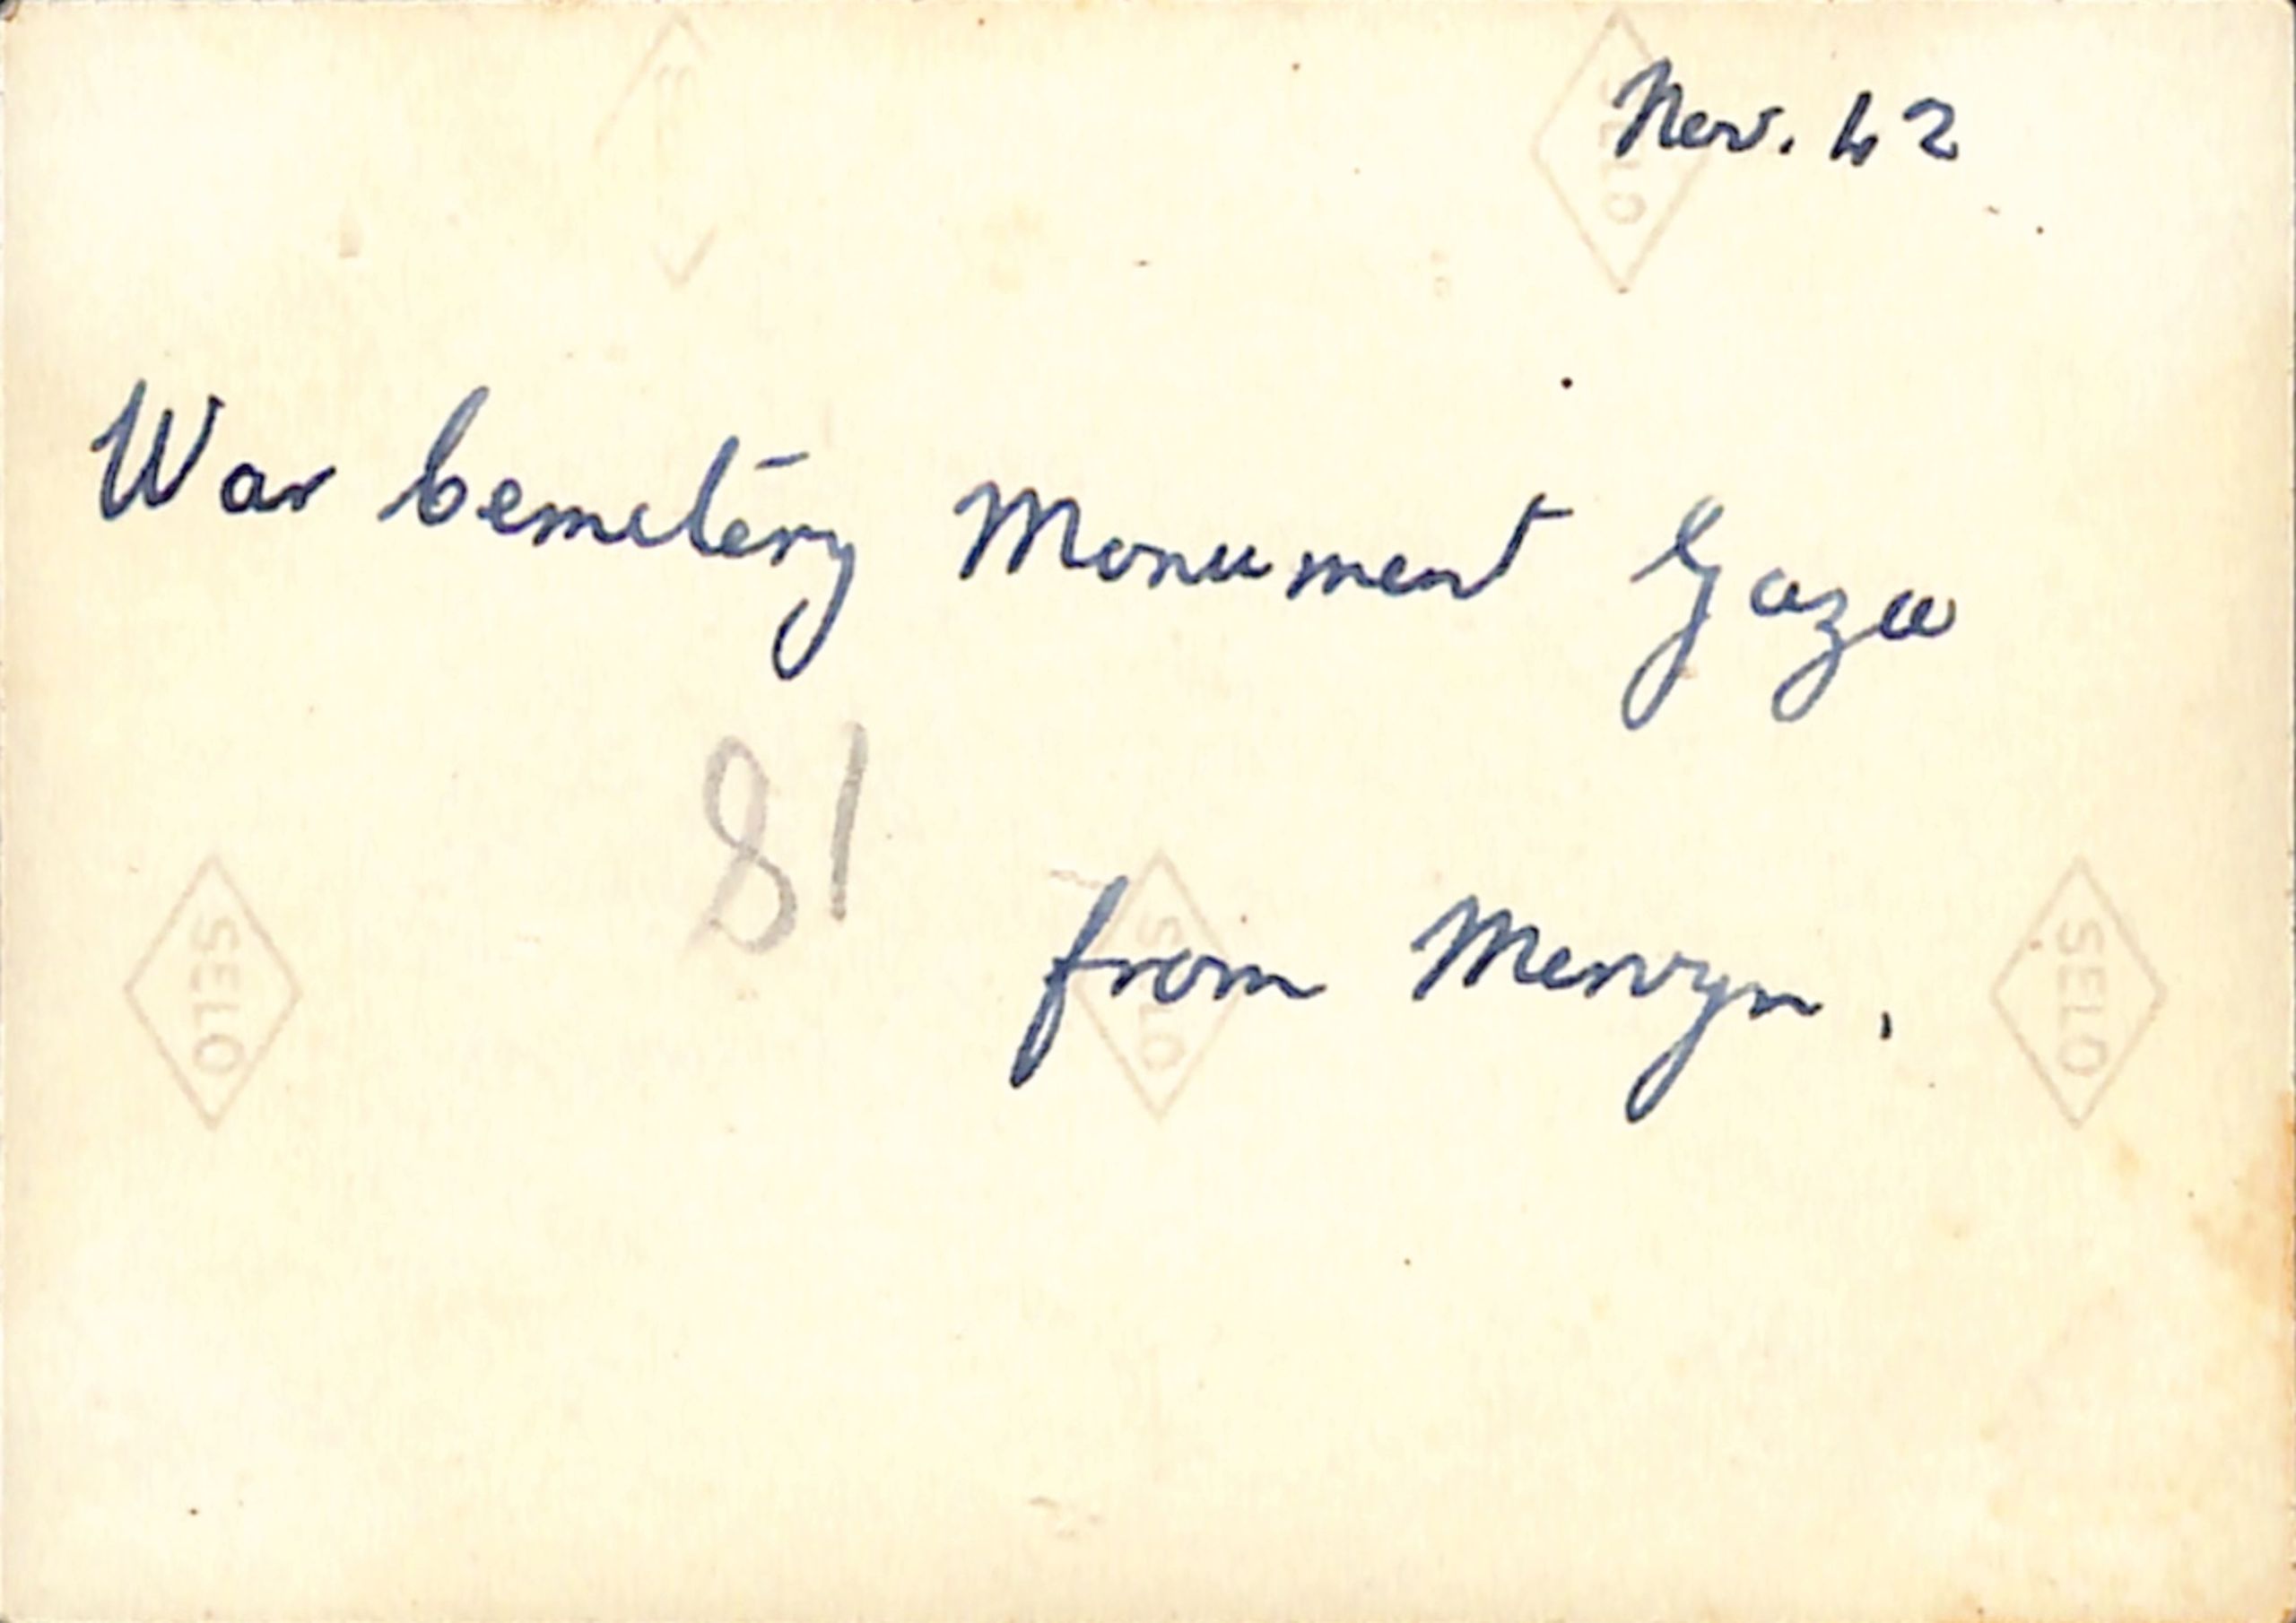 Nov. 42
War Cemetery Monument Gaza
81
from Mervyn.
SELO
SELO
SELO
SELO